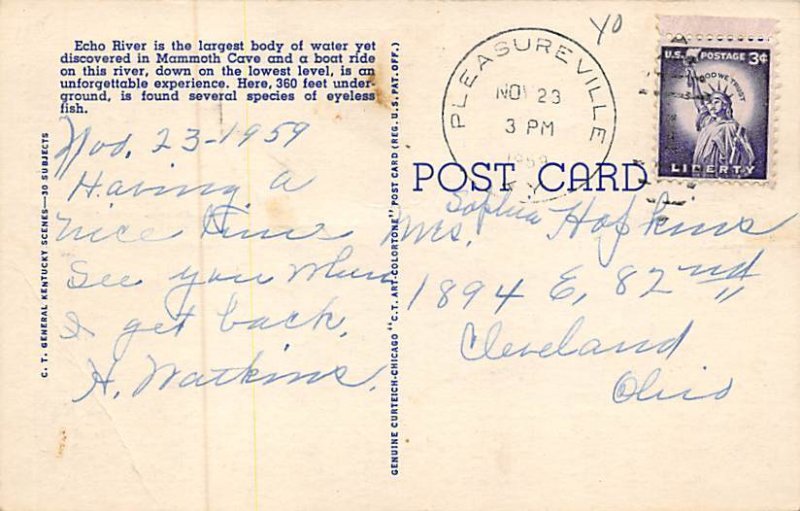 Echo River is the largest body of water yet
discovered in Mammoth Cave and a boat ride
on this river, down on the lowest level, is an
unforgettable experience. Here, 360 feet under-
ground, is found several species of eyeless
fish.
Nov. 23-1959
Having a
nice time
See you when
I get back.
H. Watkins.
C. T. GENERAL KENTUCKY SCENES—30 SUBJECTS
GENUINE CURTEICH-CHICAGO "C. T. ART-COLORTONE" POST CARD (REG. U. S. PAT. OFF.)
40
PLEASUREVILLE
NOV 23
3 PM
1959
KY
U.S. POSTAGE 3¢
IN GOD WE TRUST
LIBERTY
POST CARD
Mrs. Sophia Hopkins
1894 E, 82nd
Cleveland
Ohio